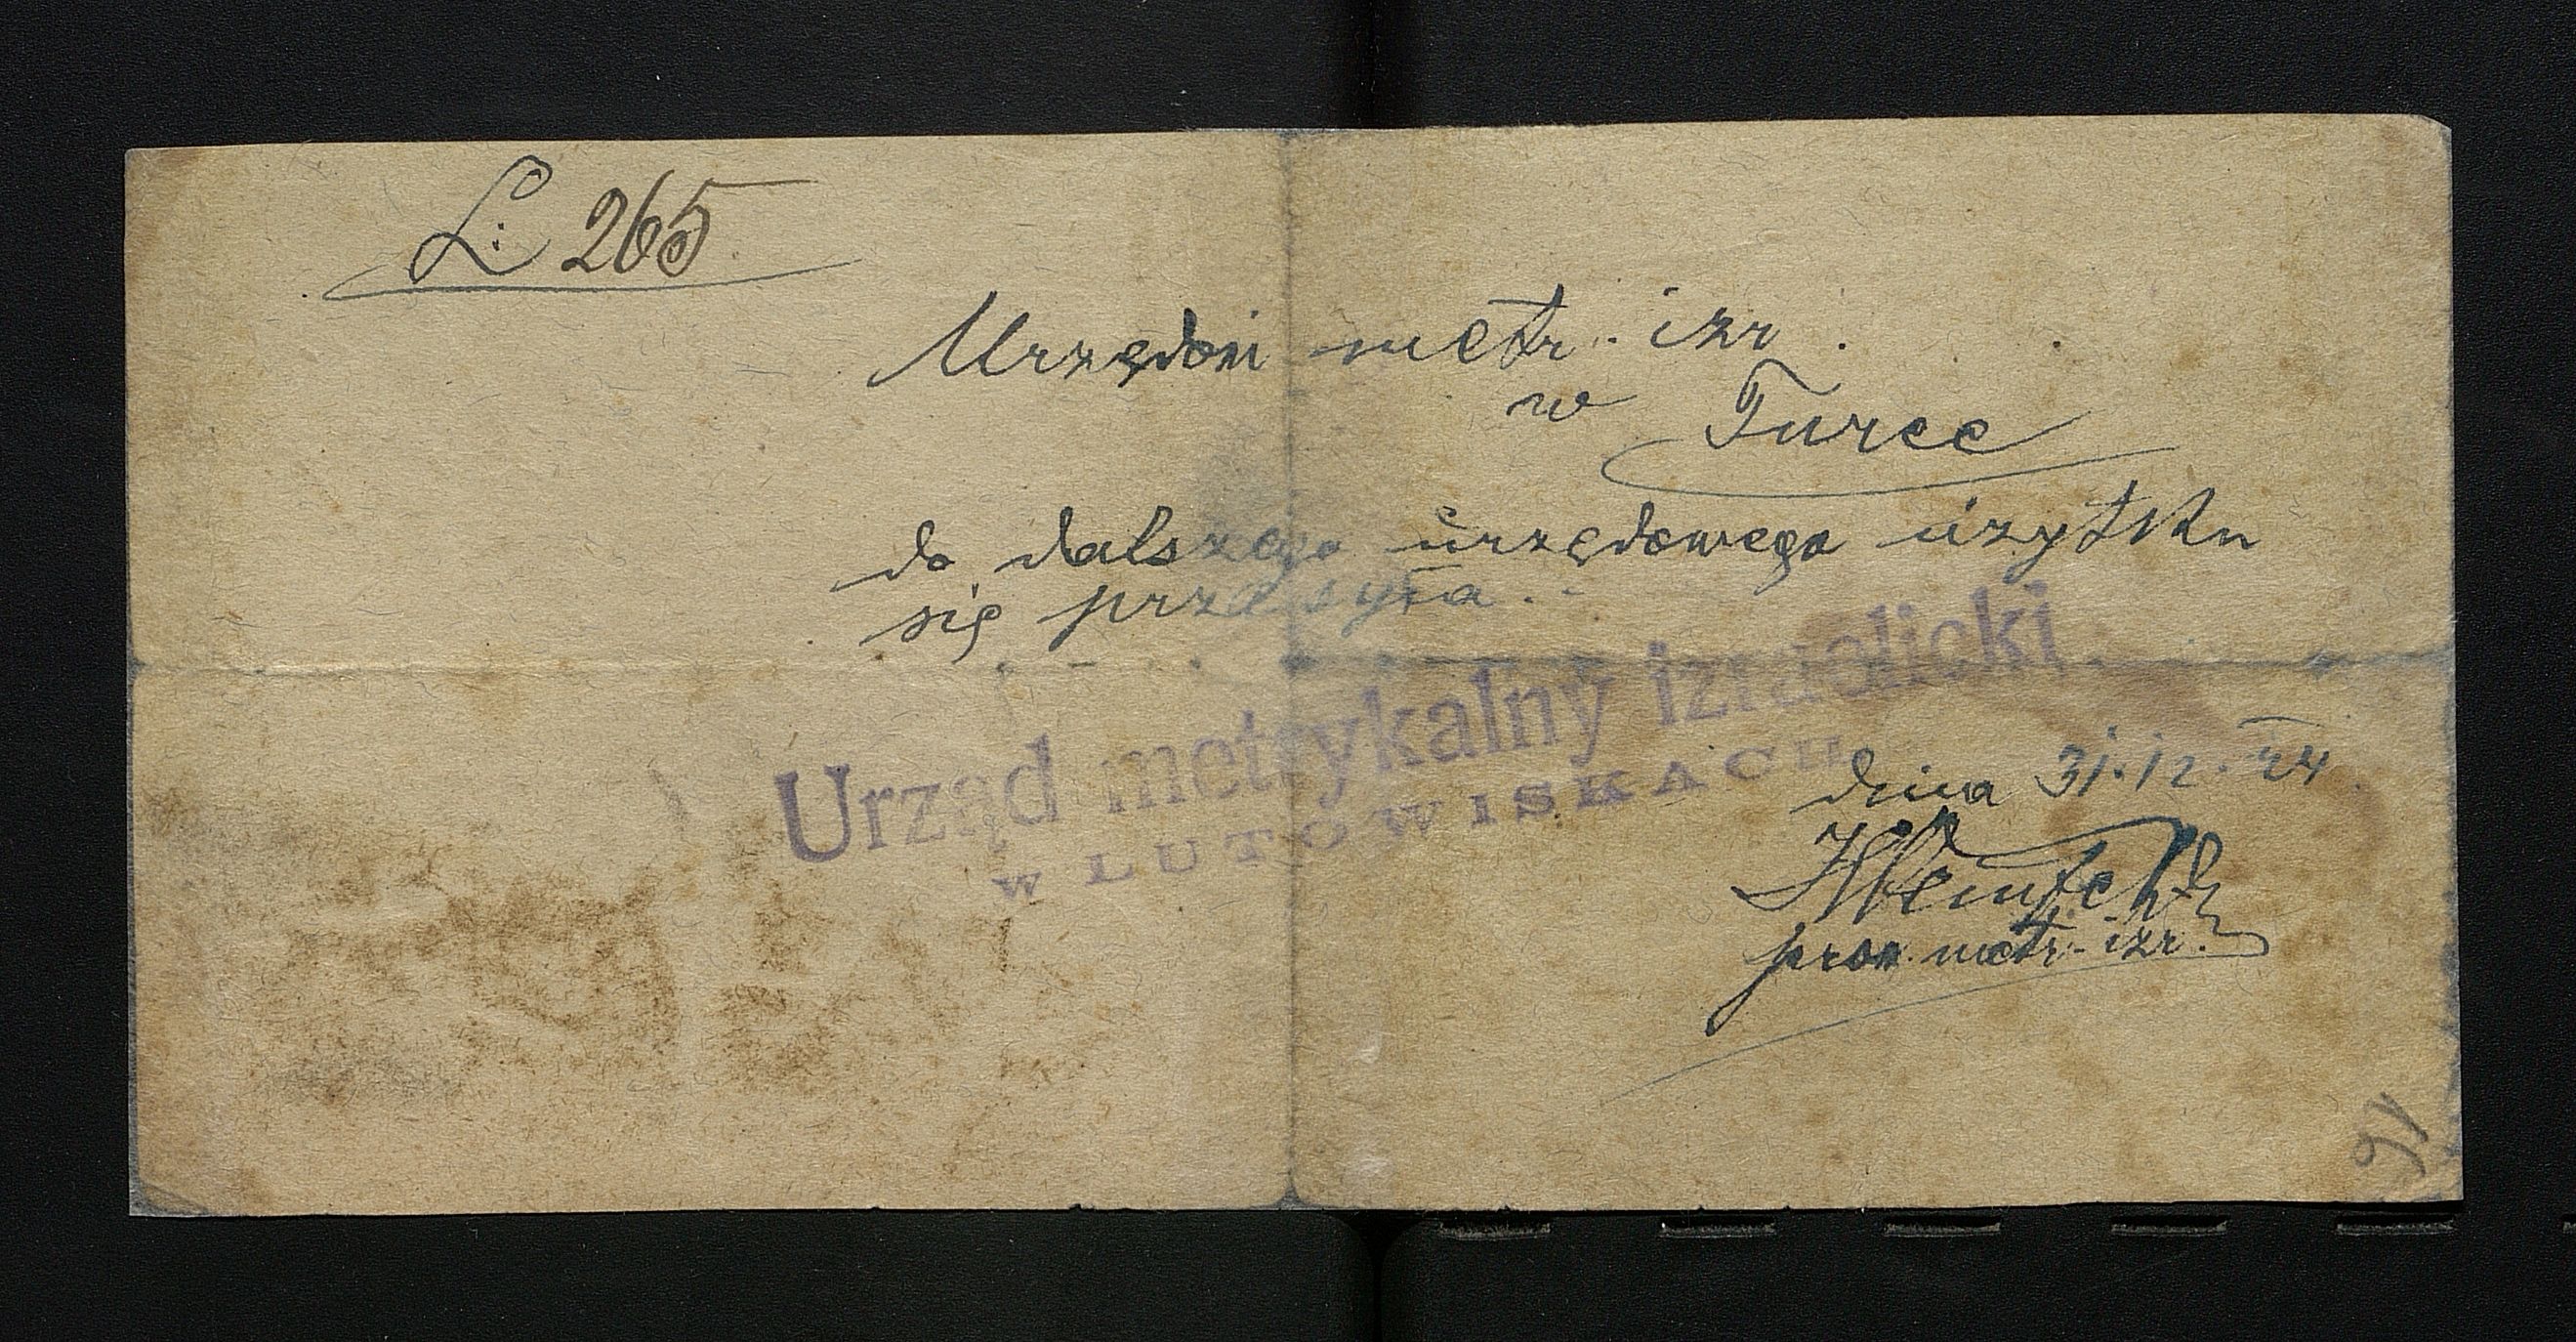 L: 265
Urzędowi metr. izr.
w Turce
do dalszego urzędowego użytku
się przesyła.
Urząd metrykalny izraelicki
w LUTOWISKACH
dnia 31.12.24
HWeinfeld
prow. metr. izr.